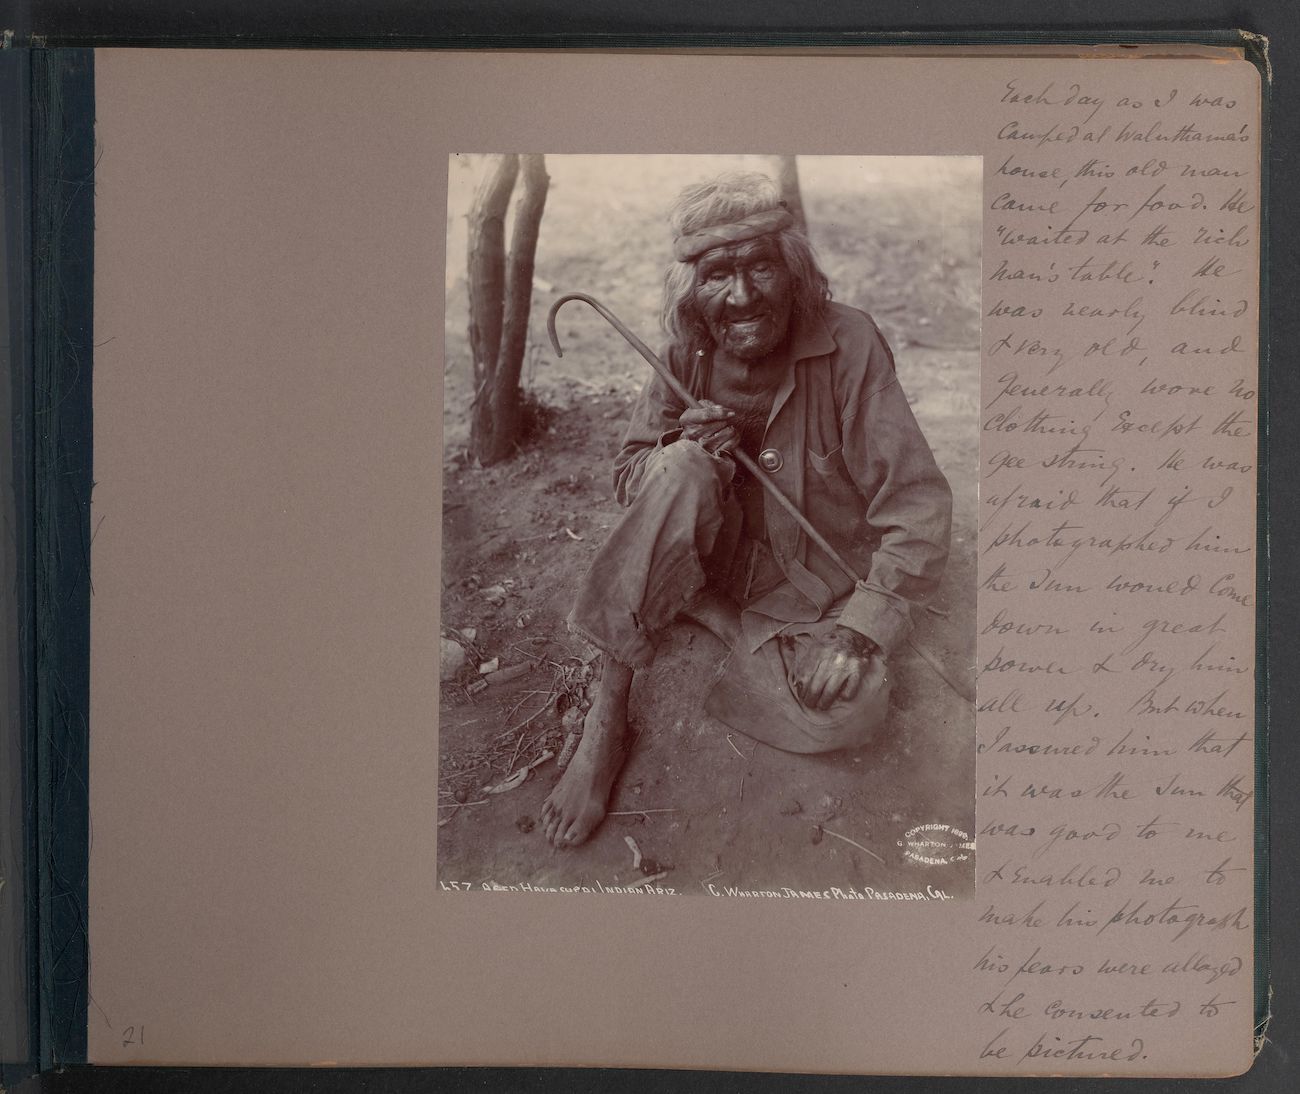 Each day as I was
Camped at Waluthama's
house, this old man
came for food. He
"waited at the rich
man's table". He
was nearly blind
& very old, and
generally wore no
clothing Except the
gee string. He was
afraid that if I
photographed him
the Sun would Come
down in great
power & dry him
all up. But when
I assured him that
it was the Sun that
was good to me
& Enabled me to
make his photograph
his fears were allayed
& he consented to
be pictured.
COPYRIGHT 1899,
G. WHARTON JAMES
PASADENA, CAL
L57 AGED HAVASUPAI INDIAN ARIZ. G. WHARTON JAMES Photo PASADENA, CAL.
21